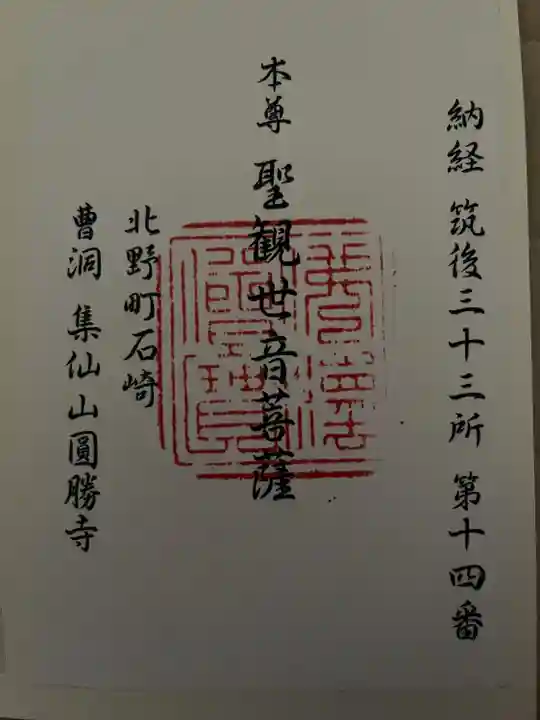 納経 筑後三十三所 第十四番
本尊 聖観世音菩薩
北野町石崎
曹洞 集仙山圓勝寺